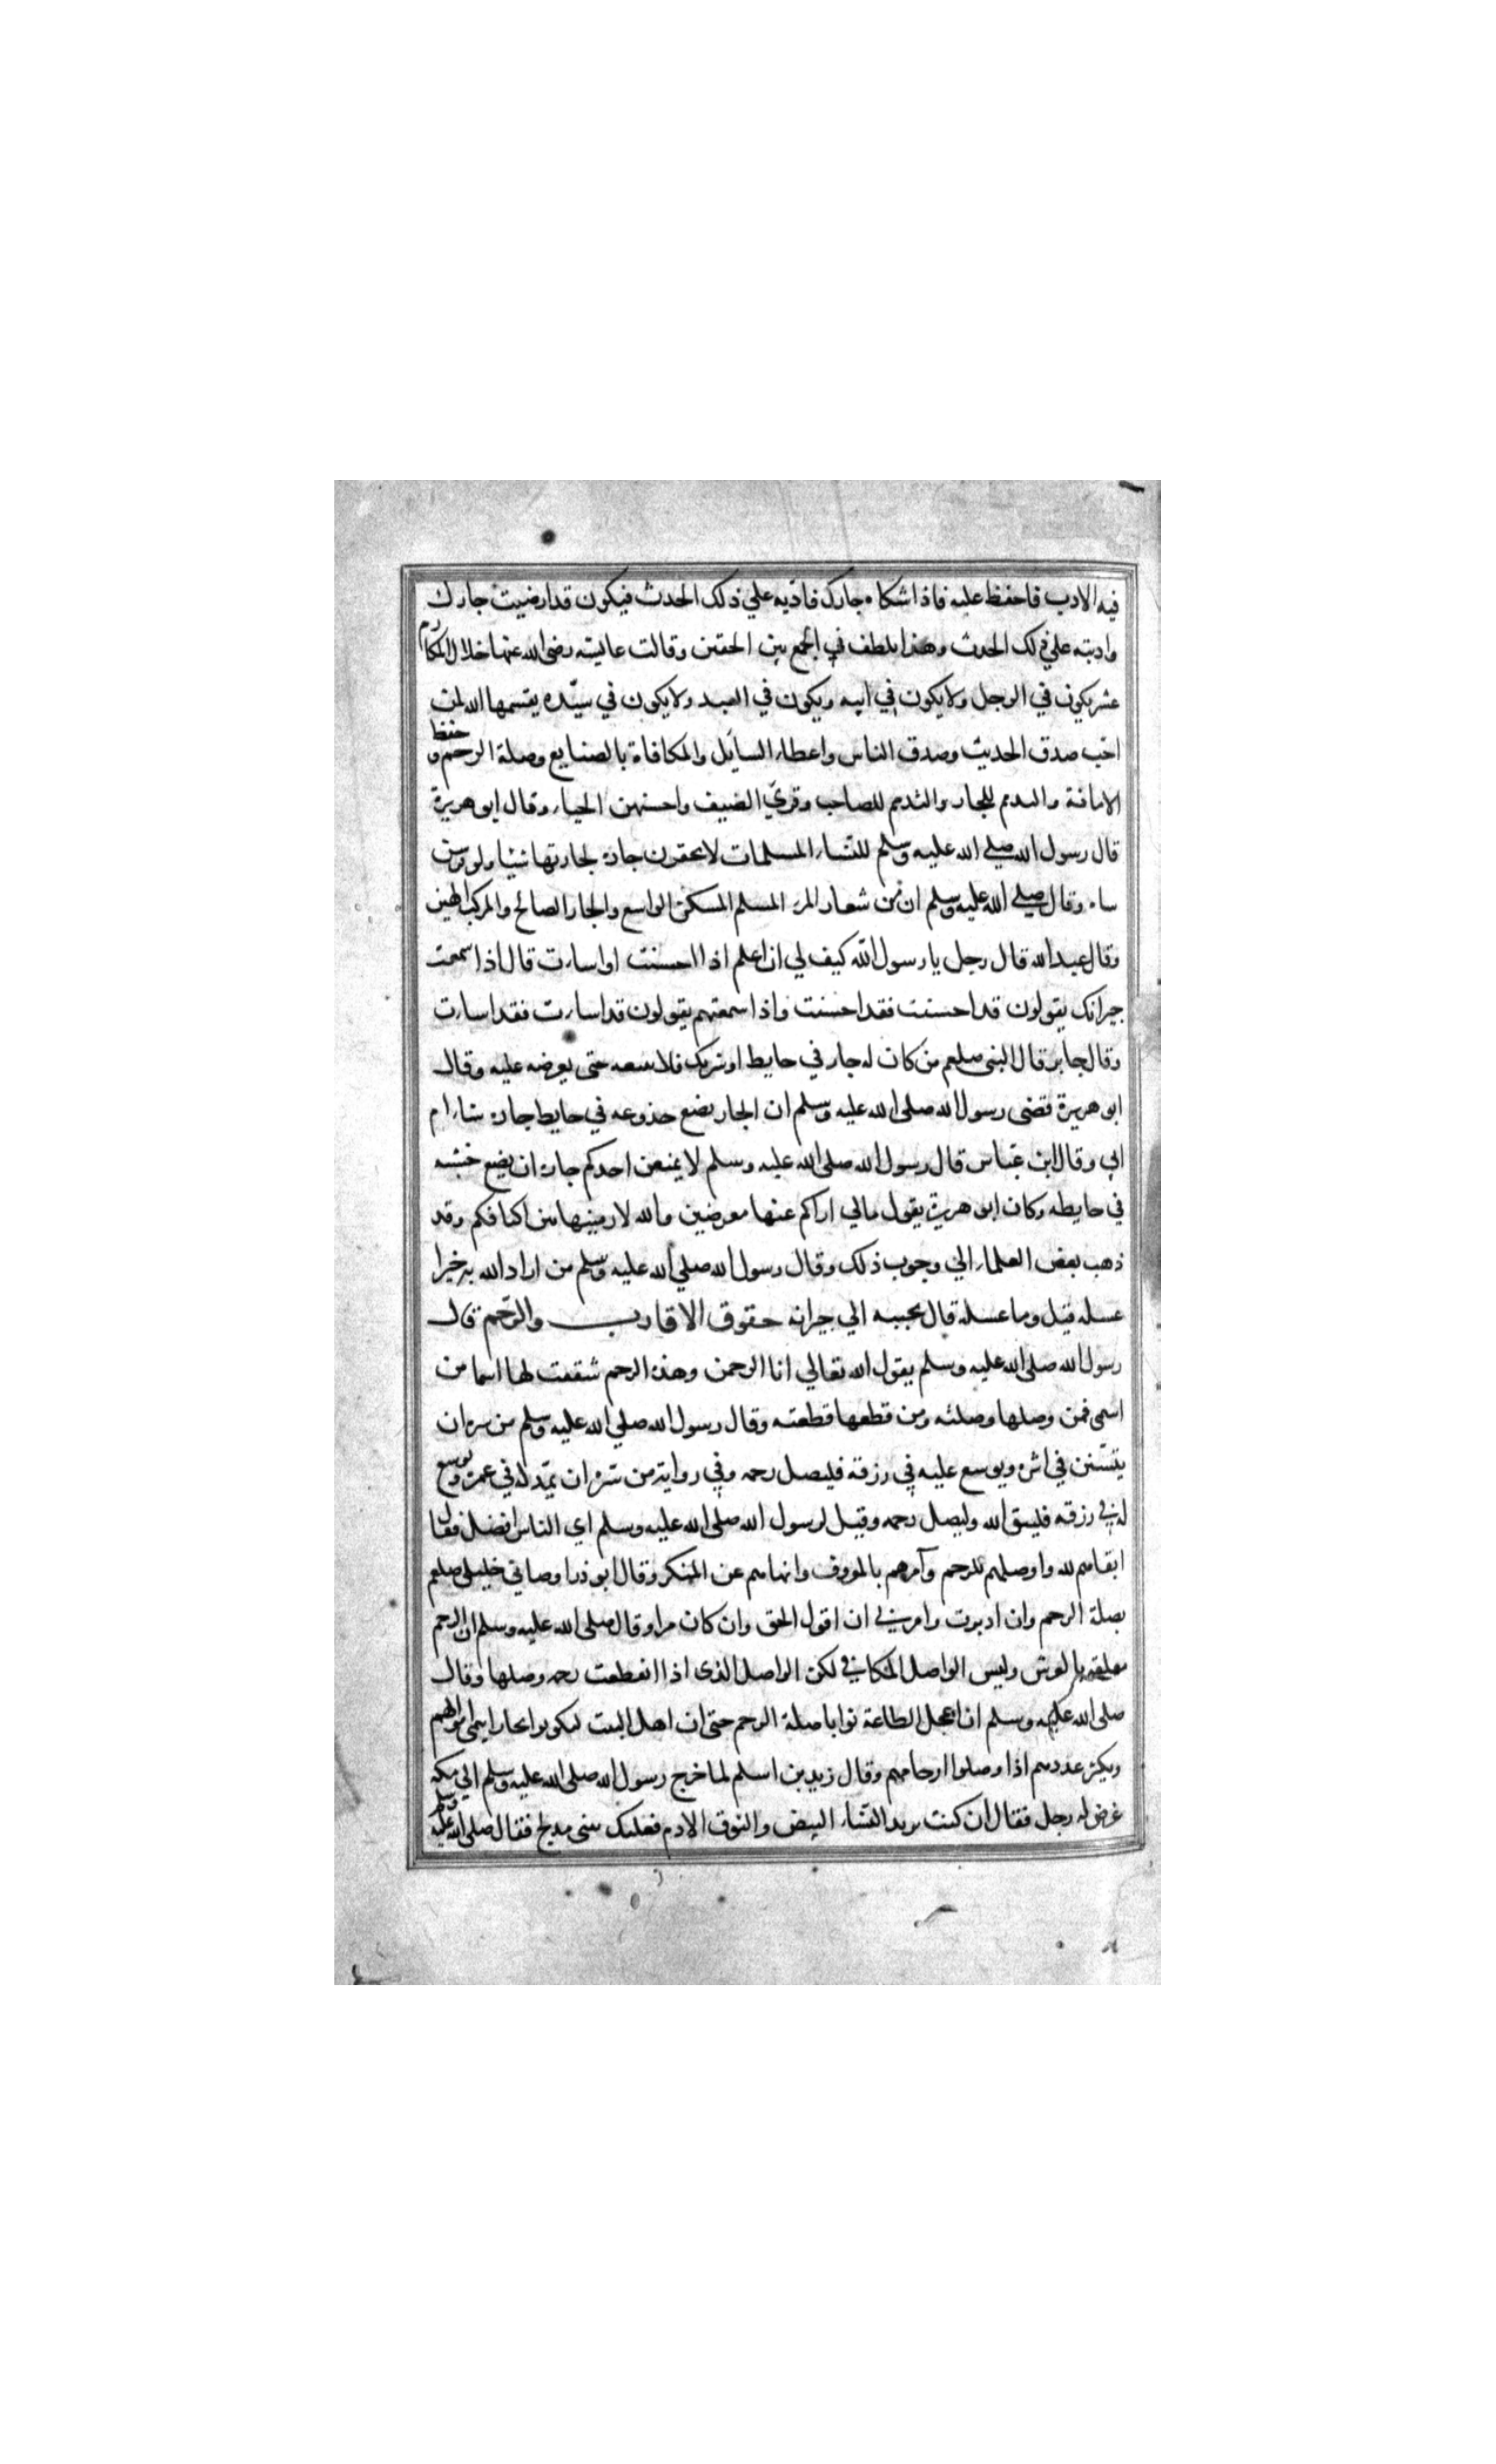 فيه الادب فاحفظ عليه فاذا شكاه جارك فادبه علي ذلك الحدث فيكون قد ارضيت جارك
وادبته علي ذلك الحدث وهذا يلطف في الجمع بين الحقين وقالت عايشه رضى الله عنها خلال المكارم
عشر يكون في الرجل ولا يكون في ابيه ويكون في العبد ولا يكون في سيّده يقسمها الله لمن
احّب صدق الحديث وصدق الناس واعطاء السايل والمكافاة بالصنايع وصلة الرحم وحفظ
الامانة والتدمم للجار والتدمم للصاحب وقري الضيف واحسنهن الحياء وقال ابو هريرة
قال رسول الله صلي الله عليه وسلم للنساء المسلمات لا تحقرن جارة لجارتها شيئا ولو فرسن
ساه وقال صلي الله عليه وسلم ان من شعار المرء المسلم المسكن الواسع والجار الصالح والمركب الهين
وقال عبد الله قال رجل يا رسول الله كيف لي ان اعلم اذا احسنت او اسات قال اذا سمعت
جيرانك يقولون قد احسنت فقد احسنت واذا سمعتهم يقولون قد اسات فقد اسات
وقال جابر قال النبى صلعم من كان له جار في حايط او شريك فلا يبعه حتى يعرضه عليه وقال
ابو هريرة قضى رسول الله صلى الله عليه وسلم ان الجار يضع جذوعه في حايط جاره شاء ام
ابي وقال ابن عباس قال رسول الله صلى الله عليه وسلم لا يمنعن احدكم جاره ان يضع خشبه
في حايطه وكان ابو هريرة يقول مالي اراكم عنها معرضين والله لارمينها بين اكتافكم وقد
ذهب بعض العلماء الي وجوب ذلك وقال رسول الله صلي الله عليه وسلم من اراد الله به خيرا
عسله قيل وما عسله قال يحببه الي جيرانه حقوق الاقارب والرّحم قال
رسول الله صلى الله عليه وسلم يقول الله تعالي انا الرحمن وهذه الرحم شققت لها اسما من
اسمى فمن وصلها وصلته ومن قطعها قطعته وقال رسول الله صلي الله عليه وسلم من سره ان
في اثره ويوسع عليه في رزقه فليصل رحمه وفي رواية من سّره ان يمّد له في عمره ويوسع
له في رزقه فليتق الله وليصل رحمه وقيل لرسول الله صلى الله عليه وسلم اي الناس افضل فقال
اتقاهم لله واوصلهم للرحم وآمرهم بالمعروف وانهاهم عن المنكر وقال ابو ذر اوصاني خليلى صلعم
بصلة الرحم وان ادبرت وامرني ان اقول الحق وان كان مرا وقال صلى الله عليه وسلم ان الرحم
معلقه بالعرش وليس الواصل المكافي لكن الواصل الذى اذا انقطعت رحمه وصلها وقال
صلى الله عليه وسلم ان اعجل الطاعة ثوابا صلة الرحم حتى ان اهل البيت ليكونوا فجارا فينمى اموالهم
ويكثر عددهم اذا وصلوا ارحامهم وقال زيد بن اسلم لما خرج رسول الله صلى الله عليه وسلم الي مكه
عرض له رجل فقال ان كنت تريد النساء البيض والنوق الادم فعليك ببنى مدلج فقال صلى الله عليه وسلم